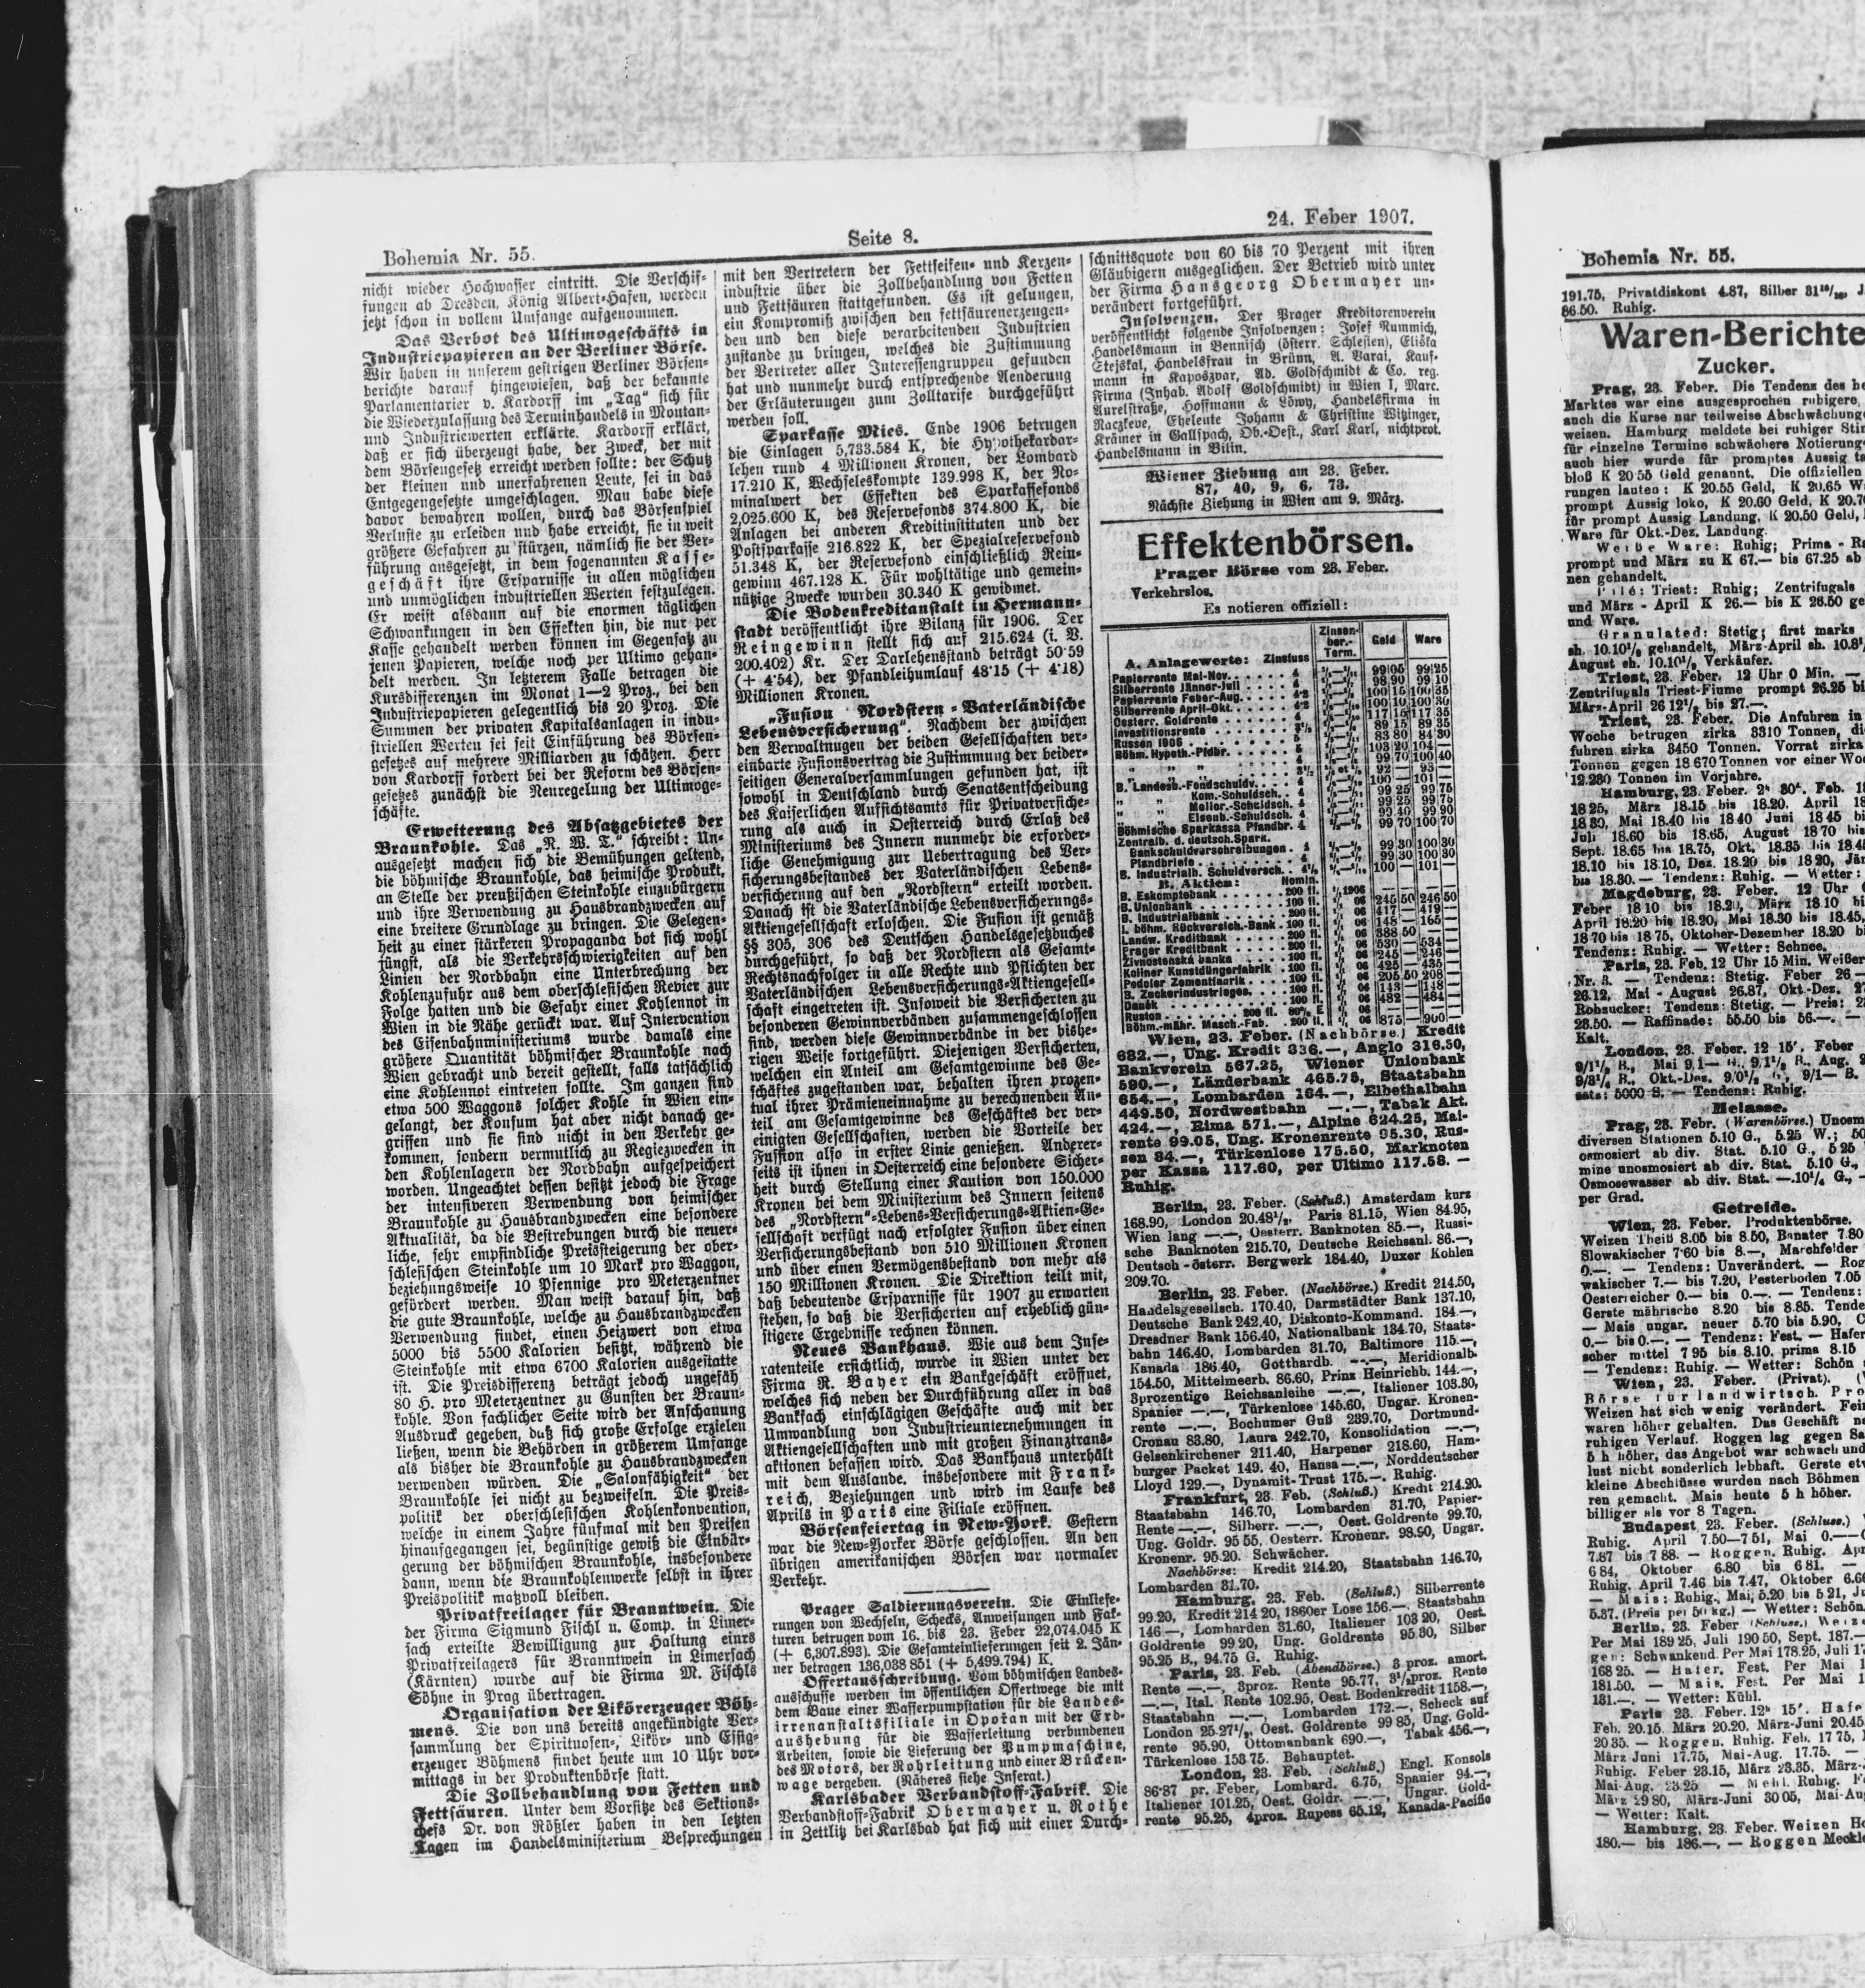 Bohemia Nr. 55.
Seite 8.
24. Feber 1907.
nicht wieder Hochwasser eintritt. Die Verschif-
fungen ab Dresden, König Albert-Hafen, werden
jetzt schon in vollem Umfange aufgenommen.
Das Verbot des Ultimogeschäfts in
Industriepapieren an der Berliner Börse.
Wir haben in unserem gestrigen Berliner Börsen-
berichte darauf hingewiesen, daß der bekannte
Parlamentarier v. Kardorff im „Tag“ sich für
die Wiederzulassung des Terminhandels in Montan-
und Industriewerten erklärte. Kardorff erklärt,
daß er sich überzeugt habe, der Zweck, der mit
dem Börsengesetz erreicht werden sollte: der Schutz
der kleinen und unerfahrenen Leute, sei in das
Entgegengesetzte umgeschlagen. Man habe diese
davor bewahren wollen, durch das Börsenspiel
Verluste zu erleiden und habe erreicht, sie in weit
größere Gefahren zu stürzen, nämlich sie der Ver-
führung ausgesetzt, in dem sogenannten Kasse-
geschäft ihre Ersparnisse in allen möglichen
und unmöglichen industriellen Werten festzulegen.
Er weist alsdann auf die enormen täglichen
Schwankungen in den Effekten hin, die nur per
Kasse gehandelt werden können im Gegensatz zu
jenen Papieren, welche noch per Ultimo gehan-
delt werden. In letzterem Falle betragen die
Kursdifferenzen im Monat 1—2 Proz., bei den
Industriepapieren gelegentlich bis 20 Proz. Die
Summen der privaten Kapitalsanlagen in indu-
striellen Werten sei seit Einführung des Börsen-
gesetzes auf mehrere Milliarden zu schätzen. Herr
von Kardorff fordert bei der Reform des Börsen-
gesetzes zunächst die Neuregelung der Ultimoge-
schäfte.
Erweiterung des Absatzgebietes der
Braunkohle. Das „N. W. T.“ schreibt: Un-
ausgesetzt machen sich die Bemühungen geltend,
die böhmische Braunkohle, das heimische Produkt,
an Stelle der preußischen Steinkohle einzubürgern
und ihre Verwendung zu Hausbrandzwecken auf
eine breitere Grundlage zu bringen. Die Gelegen-
heit zu einer stärkeren Propaganda bot sich wohl
jüngst, als die Verkehrsschwierigkeiten auf den
Linien der Nordbahn eine Unterbrechung der
Kohlenzufuhr aus dem oberschlesischen Revier zur
Folge hatten und die Gefahr einer Kohlennot in
Wien in die Nähe gerückt war. Auf Intervention
des Eisenbahnministeriums wurde damals eine
größere Quantität böhmischer Braunkohle nach
Wien gebracht und bereit gestellt, falls tatsächlich
eine Kohlennot eintreten sollte. Im ganzen sind
etwa 500 Waggons solcher Kohle in Wien ein-
gelangt, der Konsum hat aber nicht danach ge-
griffen und sie sind nicht in den Verkehr ge-
kommen, sondern vermutlich zu Regiezwecken in
den Kohlenlagern der Nordbahn aufgespeichert
worden. Ungeachtet dessen besitzt jedoch die Frage
der intensiveren Verwendung von heimischer
Braunkohle zu Hausbrandzwecken eine besondere
Aktualität, da die Bestrebungen durch die neuer-
liche, sehr empfindliche Preissteigerung der ober-
schlesischen Steinkohle um 10 Mark pro Waggon,
beziehungsweise 10 Pfennige pro Meterzentner
gefördert werden. Man weist darauf hin, daß
die gute Braunkohle, welche zu Hausbrandzwecken
Verwendung findet, einen Heizwert von etwa
5000 bis 5500 Kalorien besitzt, während die
Steinkohle mit etwa 6700 Kalorien ausgestattet
ist. Die Preisdifferenz beträgt jedoch ungefäh
80 H. pro Meterzentner zu Gunsten der Braun-
kohle. Von fachlicher Seite wird der Anschauung
Ausdruck gegeben, daß sich große Erfolge erzielen
ließen, wenn die Behörden in größerem Umfange
als bisher die Braunkohle zu Hausbrandzwecken
verwenden würden. Die „Salonfähigkeit“ der
Braunkohle sei nicht zu bezweifeln. Die Preis-
politik der oberschlesischen Kohlenkonvention,
welche in einem Jahre fünfmal mit den Preisen
hinaufgegangen sei, begünstige gewiß die Einbür-
gerung der böhmischen Braunkohle, insbesondere
dann, wenn die Braunkohlenwerke selbst in ihrer
Preispolitik maßvoll bleiben.
Privatfreilager für Branntwein. Die
der Firma Sigmund Fischl u. Comp. in Limer-
sach erteilte Bewilligung zur Haltung eines
Privatfreilagers für Branntwein in Limersach
(Kärnten) wurde auf die Firma M. Fischls
Söhne in Prag übertragen.
Organisation der Likörerzeuger Böh-
mens. Die von uns bereits angekündigte Ver-
sammlung der Spirituosen-, Likör- und Essig-
erzeuger Böhmens findet heute um 10 Uhr vor-
mittags in der Produktenbörse statt.
Die Zollbehandlung von Fetten und
Fettsäuren. Unter dem Vorsitze des Sektions-
chefs Dr. von Rößler haben in den letzten
Tagen im Handelsministerium Besprechungen
mit den Vertretern der Fettseifen- und Kerzen-
industrie über die Zollbehandlung von Fetten
und Fettsäuren stattgefunden. Es ist gelungen,
ein Kompromiß zwischen den fettsäurenerzeugen-
den und den diese verarbeitenden Industrien
zustande zu bringen, welches die Zustimmung
der Vertreter aller Interessengruppen gefunden
hat und nunmehr durch entsprechende Aenderung
der Erläuterungen zum Zolltarife durchgeführt
werden soll.
Sparkasse Mies. Ende 1906 betrugen
die Einlagen 5,733.584 K, die Hypothekardar-
lehen rund 4 Millionen Kronen, der Lombard
17.210 K, Wechseleskompte 139.998 K, der No-
minalwert der Effekten des Sparkassefonds
2,025.600 K, des Reservefonds 374.800 K, die
Anlagen bei anderen Kreditinstituten und der
Postsparkasse 216.822 K, der Spezialreservefond
51.348 K, der Reservefond einschließlich Rein-
gewinn 467.128 K. Für wohltätige und gemein-
nützige Zwecke wurden 30.340 K gewidmet.
Die Bodenkreditanstalt in Hermann-
stadt veröffentlicht ihre Bilanz für 1906. Der
Reingewinn stellt sich auf 215.624 (i. V.
200.402) Kr. Der Darlehensstand beträgt 50·59
(+ 4·54), der Pfandleihumlauf 48·15 (+ 4·18)
Millionen Kronen.
„Fusion Nordstern - Vaterländische
Lebensversicherung“. Nachdem der zwischen
den Verwaltnugen der beiden Gesellschaften ver-
einbarte Fusionsvertrag die Zustimmung der beider-
seitigen Generalversammlungen gefunden hat, ist
sowohl in Deutschland durch Senatsentscheidung
des Kaiserlichen Aufsichtsamts für Privatversiche-
rung als auch in Oesterreich durch Erlaß des
Ministeriums des Innern nunmehr die erforder-
liche Genehmigung zur Uebertragung des Ver-
sicherungsbestandes der Vaterländischen Lebens-
versicherung auf den „Nordstern“ erteilt worden.
Danach ist die Vaterländische Lebensversicherungs-
Aktiengesellschaft erloschen. Die Fusion ist gemäß
§§ 305, 306 des Deutschen Handelsgesetzbuches
durchgeführt, so daß der Nordstern als Gesamt-
Rechtsnachfolger in alle Rechte und Pflichten der
Vaterländischen Lebensversicherungs-Aktiengesell-
schaft eingetreten ist. Insoweit die Versicherten zu
besonderen Gewinnverbänden zusammengeschlossen
sind, werden diese Gewinnverbände in der bishe-
rigen Weise fortgeführt. Diejenigen Versicherten,
welchen ein Anteil am Gesamtgewinne des Ge-
schäftes zugestanden war, behalten ihren prozen-
tual ihrer Prämieneinnahme zu berechnenden An-
teil am Gesamtgewinne des Geschäftes der ver-
einigten Gesellschaften, werden die Vorteile der
Fusion also in erster Linie genießen. Anderer-
seits ist ihnen in Oesterreich eine besondere Sicher-
heit durch Stellung einer Kaution von 150.000
Kronen bei dem Ministerium des Innern seitens
des „Nordstern“-Lebens-Versicherungs-Aktien-Ge-
sellschaft verfügt nach erfolgter Fusion über einen
Versicherungsbestand von 510 Millionen Kronen
und über einen Vermögensbestand von mehr als
150 Millionen Kronen. Die Direktion teilt mit,
daß bedeutende Ersparnisse für 1907 zu erwarten
stehen, so daß die Versicherten auf erheblich gün-
stigere Ergebnisse rechnen können.
Neues Bankhaus. Wie aus dem Inse-
ratenteile ersichtlich, wurde in Wien unter der
Firma R. Bayer ein Bankgeschäft eröffnet,
welches sich neben der Durchführung aller in das
Bankfach einschlägigen Geschäfte auch mit der
Umwandlung von Industrieunternehmungen in
Aktiengesellschaften und mit großen Finanztrans-
aktionen befassen wird. Das Bankhaus unterhält
mit dem Auslande, insbesondere mit Frank-
reich, Beziehungen und wird im Laufe des
Aprils in Paris eine Filiale eröffnen.
Börsenfeiertag in New-York. Gestern
war die New-Yorker Börse geschlossen. An den
übrigen amerikanischen Börsen war normaler
Verkehr.
Prager Saldierungsverein. Die Einliefe-
rungen von Wechseln, Schecks, Anweisungen und Fak-
turen betrugen vom 16. bis 23. Feber 22,074.045 K
(+ 6,307.893). Die Gesamteinlieferungen seit 2. Jän-
ner betragen 136,038 851 (+ 5,499.794) K.
Offertausschreibung. Vom böhmischen Landes-
ausschusse werden im öffentlichen Offertwege die mit
dem Baue einer Wasserpumpstation für die Landes-
irrenanstaltsfiliale in Opořan mit der Erd-
aushebung für die Wasserleitung verbundenen
Arbeiten, sowie die Lieferung der Pumpmaschine,
des Motors, der Rohrleitung und einer Brücken-
wage vergeben. (Näheres siehe Inserat.)
Karlsbader Verbandstoff-Fabrik. Die
Verbandstoff-Fabrik Obermayer u. Rothe
in Zettlitz bei Karlsbad hat sich mit einer Durch-
schnittsquote von 60 bis 70 Perzent mit ihren
Gläubigern ausgeglichen. Der Betrieb wird unter
der Firma Hansgeorg Obermayer un-
verändert fortgeführt.
Insolvenzen. Der Prager Kreditorenverein
veröffentlicht folgende Insolvenzen: Josef Rummich,
Handelsmann in Bennisch (österr. Schlesien), Eliška
Stejskal, Handelsfrau in Brünn, A. Varai, Kauf-
mann in Kaposzvar, Ad. Goldschmidt & Co. reg.
Firma (Inhab. Adolf Goldschmidt) in Wien I, Marc.
Aurelstraße, Hoffmann & Löwy, Handelsfirma in
Raczkewe, Eheleute Johann & Christine Witzinger,
Krämer in Gallspach, Ob.-Oest., Karl Karl, nichtprot.
Handelsmann in Bilin.
Wiener Ziehung am 23. Feber.
87, 40, 9, 6, 73.
Nächste Ziehung in Wien am 9. März.
Effektenbörsen.
Prager Börse vom 23. Feber.
Verkehrslos.
Es notieren offiziell:
A. Anlagewerte: Zinsfuss Zinsen-ber.-Term. Geld Ware
Papierrente Mai-Nov. 4 99 05 99 25
Silberrente Jänner-Juli 4 98 90 99 10
Papierrente Feber-Aug. 4·2 100 15 100 35
Silberrente April-Okt. 4·2 100 10 100 30
Oesterr. Goldrente 4 117 15 117 35
Investitionsrente 3½ 89 15 89 35
Russen 1906 5 83 80 84 30
Böhm. Hypoth.-Pfdbr. 5 103 20 104 —
99 70 100 40
92 — 93 —
B. Landesb.-Fondschuldv. 4 100 — 101 —
Kom.-Schuldsch. 4 99 25 99 75
Melior.-Schuldsch. 4 99 25 99 75
Eisenb.-Schuldsch. 4 99 40 99 90
Böhmische Sparkassa Pfandbr. 4 99 70 100 70
Zentralb. d. deutsch. Spark.
Bankschuldverschreibungen 4 99 30 100 30
Pfandbriefe 4 99 30 100 30
B. Industrialb. Schuldversch. 4½ 100 — 101 —
B. Aktien: Nomin.
B. Eskomptebank 200 fl.
B. Unionbank 100 fl. 245 50 246 50
B. Industrialbank 200 fl. 417 — 419 —
I. böhm. Rückversich.-Bank 100 fl. 148 — 165 —
Landw. Kreditbank 200 fl. 388 50 —
Prager Kreditbank 200 fl. 530 — 534 —
Živnostenská banka 100 fl. 245 — 246 —
Koliner Kunstdüngerfabrik 100 fl. 425 — 435 —
Podoler Zementfabrik 100 fl. 205 50 208 —
B. Zuckerindustrieges. 100 fl. 143 — 148 —
Daněk 100 fl. 482 — 484 —
Ruston 200 fl.
Böhm.-mähr. Masch.-Fab. 200 fl. 875 — 900 —
Wien, 23. Feber. (Nachbörse.) Kredit
682.—, Ung. Kredit 836.—, Anglo 316.50,
Bankverein 567.25, Wiener Unionbank
590.—, Länderbank 465.75, Staatsbahn
684.—, Lombarden 164.—, Elbethalbahn
449.50, Nordwestbahn —.—, Tabak Akt.
424.—, Rima 571.—, Alpine 624.25, Mai-
rente 99.05, Ung. Kronenrente 95.30, Rus-
sen 84.—, Türkenlose 175.50, Marknoten
per Kassa 117.60, per Ultimo 117.58. —
Ruhig.
Berlin, 23. Feber. (Schluß.) Amsterdam kurz
168.90, London 20.48½, Paris 81.15, Wien 84.95,
Wien lang —.—, Oesterr. Banknoten 85.—, Russi-
sche Banknoten 215.70, Deutsche Reichsanl. 86.—,
Deutsch-österr. Bergwerk 184.40, Duxer Kohlen
209.70.
Berlin, 23. Feber. (Nachbörse.) Kredit 214.50,
Handelsgesellsch. 170.40, Darmstädter Bank 137.10,
Deutsche Bank 242.40, Diskonto-Kommand. 184.—,
Dresdner Bank 156.40, Nationalbank 134.70, Staats-
bahn 146.40, Lombarden 31.70, Baltimore 115.—,
Kanada 186.40, Gotthardb. —.—, Meridionalb.
154.50, Mittelmeerb. 86.60, Prinz Heinrichb. 144.—,
3prozentige Reichsanleihe —.—, Italiener 103.30,
Spanier —.—, Türkenlose 145.60, Ungar. Kronen-
rente —.—, Bochumer Guß 239.70, Dortmund-
Cronau 83.80, Laura 242.70, Konsolidation —.—,
Gelsenkirchener 211.40, Harpener 218.60, Ham-
burger Packet 149. 40, Hansa —.—, Norddeutscher
Lloyd 129.—, Dynamit-Trust 175.—. Ruhig.
Frankfurt, 23. Feb. (Schluß.) Kredit 214.20.
Staatsbahn 146.70, Lombarden 31.70, Papier-
Rente —.—, Silberr. —.—, Oest. Goldrente 99.70,
Ung. Goldr. 95 55, Oesterr. Kronenr. 98.90, Ungar.
Kronenr. 95.20. Schwächer.
Nachbörse: Kredit 214.20, Staatsbahn 146.70,
Lombarden 31.70.
Hamburg, 23. Feb. (Schluß.) Silberrente
99.20, Kredit 214 20, 1860er Lose 156.—, Staatsbahn
146 —, Lombarden 31.60, Italiener 103 20, Oest.
Goldrente 99 20, Ung. Goldrente 95.30, Silber
95.25 B., 94.75 G. Ruhig.
Paris, 23. Feb. (Abendbörse.) 3 proz. amort.
Rente —.—, 3proz. Rente 95.77, 3½proz. Rente
—.—, Ital. Rente 102.95, Oest. Bodenkredit 1158.—,
Staatsbahn —.—, Lombarden 172.—, Scheck auf
London 25 27½, Oest. Goldrente 99 85, Ung. Gold-
rente 95.90, Ottomanbank 690.—, Tabak 456.—,
Türkenlose 153 75. Behauptet.
London, 23. Feb. (Schluß.) Engl. Konsols
86·87 pr. Feber, Lombard. 6.75, Spanier 94.—,
Italiener 101.25, Oest. Goldr. —.—, Ungar. Gold-
rente 95.25, 4proz. Rupees 65.12, Kanada-Pacific
Bohemia Nr. 55.
191.75, Privatdiskont 4.87, Silber
86.50. Ruhig.
Waren-Berichte
Zucker.
Prag, 23. Feber. Die Tendenz des
Marktes war eine ausgesprochen ruhigere,
auch die Kurse nur teilweise
weisen. Hamburg meldete bei ruhiger
für einzelne Termine schwächere
auch hier wurde für promptes Aussig
bloß K 20 55 Geld genannt. Die offiziellen
rungen lauten: K 20.55 Geld, K 20.65
prompt Aussig loko, K 20.60 Geld,
für prompt Aussig Landung, K 20.50 Geld,
Ware für Okt.-Dez. Landung.
Weiße Ware: Ruhig; Prima -
prompt und März zu K 67.— bis 67.25 ab
nen gehandelt.
Pilé: Triest: Ruhig; Zentrifugals
und März - April K 26.— bis K 26.50
und Ware.
Granulated: Stetig; first marks
sh. 10.10½ gehandelt, März-April
August sh. 10.10½ Verkäufer.
Triest, 23. Feber. 12 Uhr 0 Min. —
Zentrifugals Triest-Fiume prompt 26.25
März-April 26 12½ bis 27.—.
Triest, 23. Feber. Die Anfuhren in
Woche betrugen zirka 3310 Tonnen,
fuhren zirka 3450 Tonnen. Vorrat zirka
Tonnen gegen 18 670 Tonnen vor einer
12.280 Tonnen im Vorjahre.
Hamburg, 23. Feber.
18 25, März 18.15 bis 18.20. April
18.30, Mai 18.40 bis 18 40 Juni 18 45
Juli 18.60 bis 18.65, August 18 70 bis
Sept. 18.65 bis 18.75, Okt. 18.35 bis
18.10 bis 18.10, Dez. 18.20 bis 18 20,
bis 18.30. — Tendenz: Ruhig. — Wetter:
Magdeburg, 23. Feber. 12 Uhr
Feber 18 10 bis 18.20, März 18.10
April 18.20 bis 18.20, Mai 18.30 bis 18.45,
18 70 bis 18 75, Oktober-Dezember 18.20
Tendenz: Ruhig. — Wetter: Schnee.
Paris, 23. Feb. 12 Uhr 15 Min. Weißer
Nr. 3. — Tendenz: Stetig. Feber 26 —
26.12, Mai - August 26.87, Okt.-Dez.
Rohzucker: Tendenz: Stetig. — Preis:
23.50. — Raffinade: 55.50 bis 56.—. —
Kalt.
London, 23. Feber. 12 15'. Feber
sats: 5000 S. — Tendenz: Ruhig.
Melasse.
Prag, 23. Febr. (Warenbörse.)
diversen Stationen 5.10 G., 5.25 W.;
osmosiert ab div. Stat. 5.10 G., 5 25
mine unosmosiert ab div. Stat. 5.10 G.,
Osmosewasser ab div. Stat. —.10¼ G.,
per Grad.
Getreide.
Wien, 23. Feber. Produktenbörse.
Weizen Theiß 8.05 bis 8.50, Banater 7.80
Slowakischer 7·60 bis 8.—, Marchfelder
0.—. — Tendenz: Unverändert. —
wakischer 7.— bis 7.20, Pesterboden 7.05
Oesterreicher 0.— bis 0.—. — Tendenz:
Gerste mährische 8.20 bis 8.85.
— Mais ungar. neuer 5.70 bis 5.90,
0.— bis 0.—. — Tendenz: Fest. — Hafer
scher mittel 7 95 bis 8.10, prima 8.15
— Tendenz: Ruhig. — Wetter: Schön
Wien, 23. Feber. (Privat).
Börse für landwirtsch.
Weizen hat sich wenig verändert.
waren höher gehalten. Das Geschäft
ruhigen Verlauf. Roggen lag gegen
5 h höher, das Angebot war schwach und
lust nicht sonderlich lebhaft. Gerste
kleine Abschlüsse wurden nach Böhmen
ren gemacht. Mais heute 5 h höher.
billiger als vor 8 Tagen.
Budapest 23. Feber. (Schluss.)
Ruhig. April 7.50—7 51, Mai
7.87 bis 7 88. — Roggen. Ruhig.
6 84, Oktober 6.80 bis 6 81. —
Ruhig. April 7.46 bis 7.47, Oktober
— Mais: Ruhig., Mai, 5.20 bis 5 21,
5.37. (Preis per 50 kg.) — Wetter: Schön.
Berlin, 23. Feber (Schluss.)
Per Mai 189 25, Juli 190 50, Sept. 187.—
gen: Schwankend. Per Mai 178.25, Juli
168 25. — Hafer. Fest. Per Mai
181.50. — Mais. Fest. Per Mai
131.—. — Wetter: Kühl.
Paris 23. Feber. 12h 15'.
Feb. 20.15. März 20.20. März-Juni 20.45
20 35. — Roggen. Ruhig. Feb. 17 75,
März Juni 17.75, Mai-Aug. 17.75. —
Ruhig. Feber 23.15, März 23.35,
Mai-Aug. 23 25 — Mehl. Ruhig.
März 29 80, März-Juni 30 05,
— Wetter: Kalt.
Hamburg, 23. Feber. Weizen
180.— bis 186.—, — Roggen